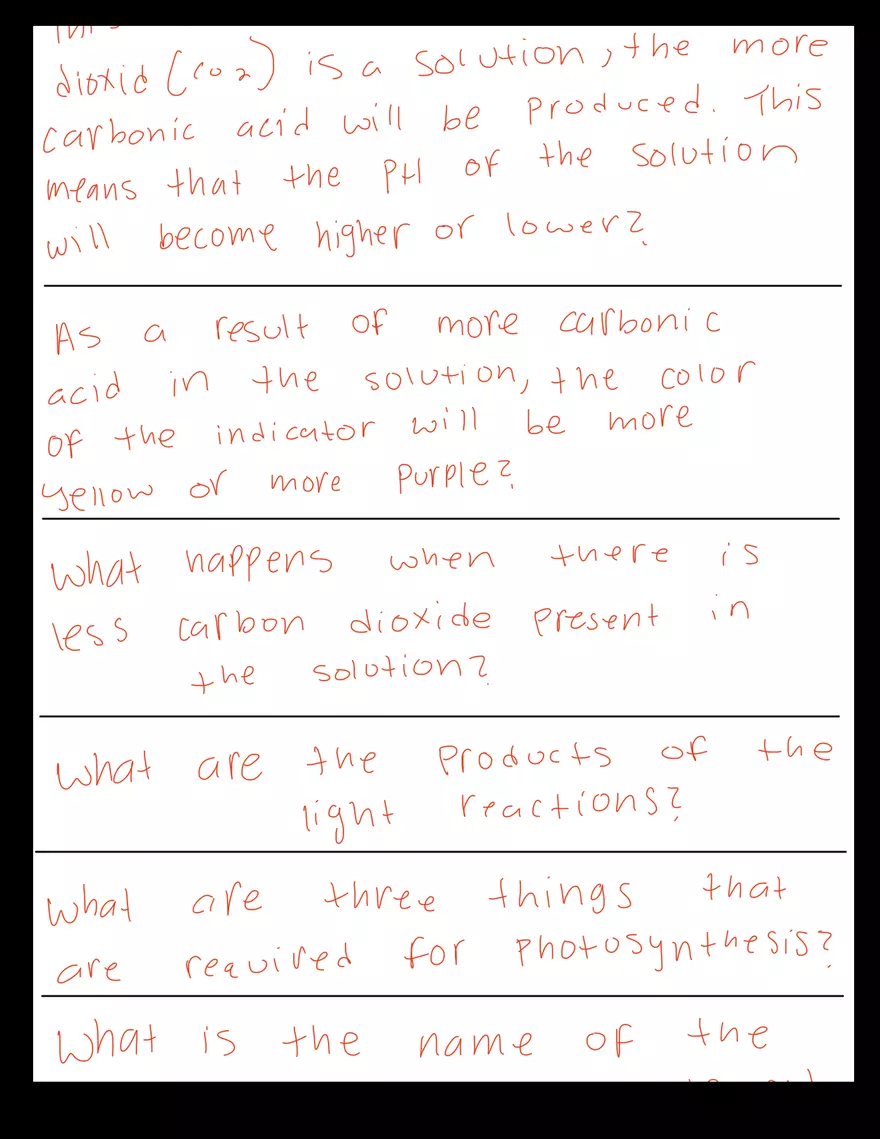 dioxid (co2) is a solution, the more
carbonic acid will be produced. This
means that the PH of the solution
will become higher or lower?
As a result of more carbonic
acid in the solution, the color
of the indicator will be more
yellow or more purple?
What happens when there is
less carbon dioxide present in
the solution?
What are the products of the
light reactions?
What are three things that
are required for photosynthesis?
What is the name of the